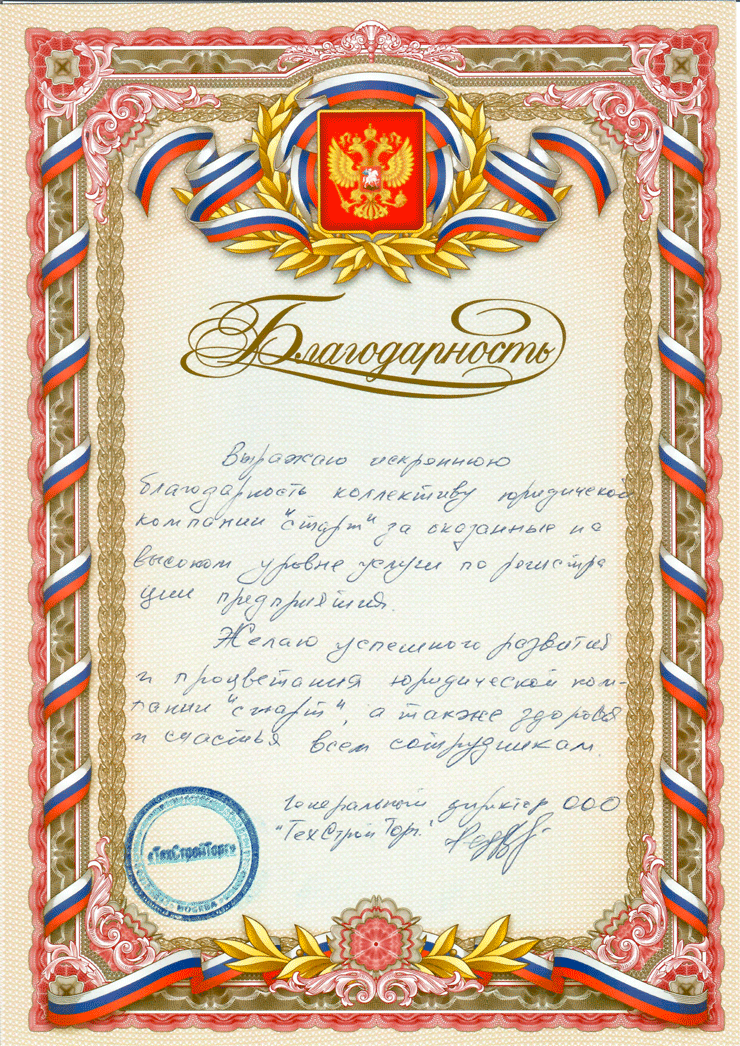 Благодарность
Выражаю искреннюю
благодарность коллективу юридической
компании "Старт" за оказанные на
высоком уровне услуги по регистра
ции предприятия.
Желаю успешного развития
и процветания юридической ком-
пании "Старт", а также здоровья
и счастья всем сотрудникам.
Генеральный директор ООО
"ТехСтройТорг"
«ТехСтройТорг»
МОСКВА